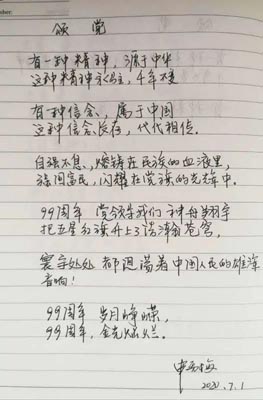 颂党
有一种精神，源于中华
这种精神永生，千年不变
有种信念，属于中国
这种信念长存，代代相传.
自强不息，熔铸在民族的血液里
强国富民，闪耀在党旗的光辉中.
99周年 党领导我们 神舟翱宇
把五星红旗升上了浩瀚苍穹，
寰宇处处都迴荡着中国人民的雄浑
音响！
99周年 岁月峥嵘，
99周年，金光灿烂.
2020.7.1